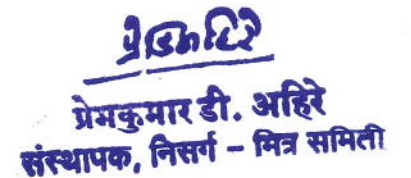 प्रेमकुमार डी. अहिरे
संस्थापक, निसर्ग – मित्र समिती